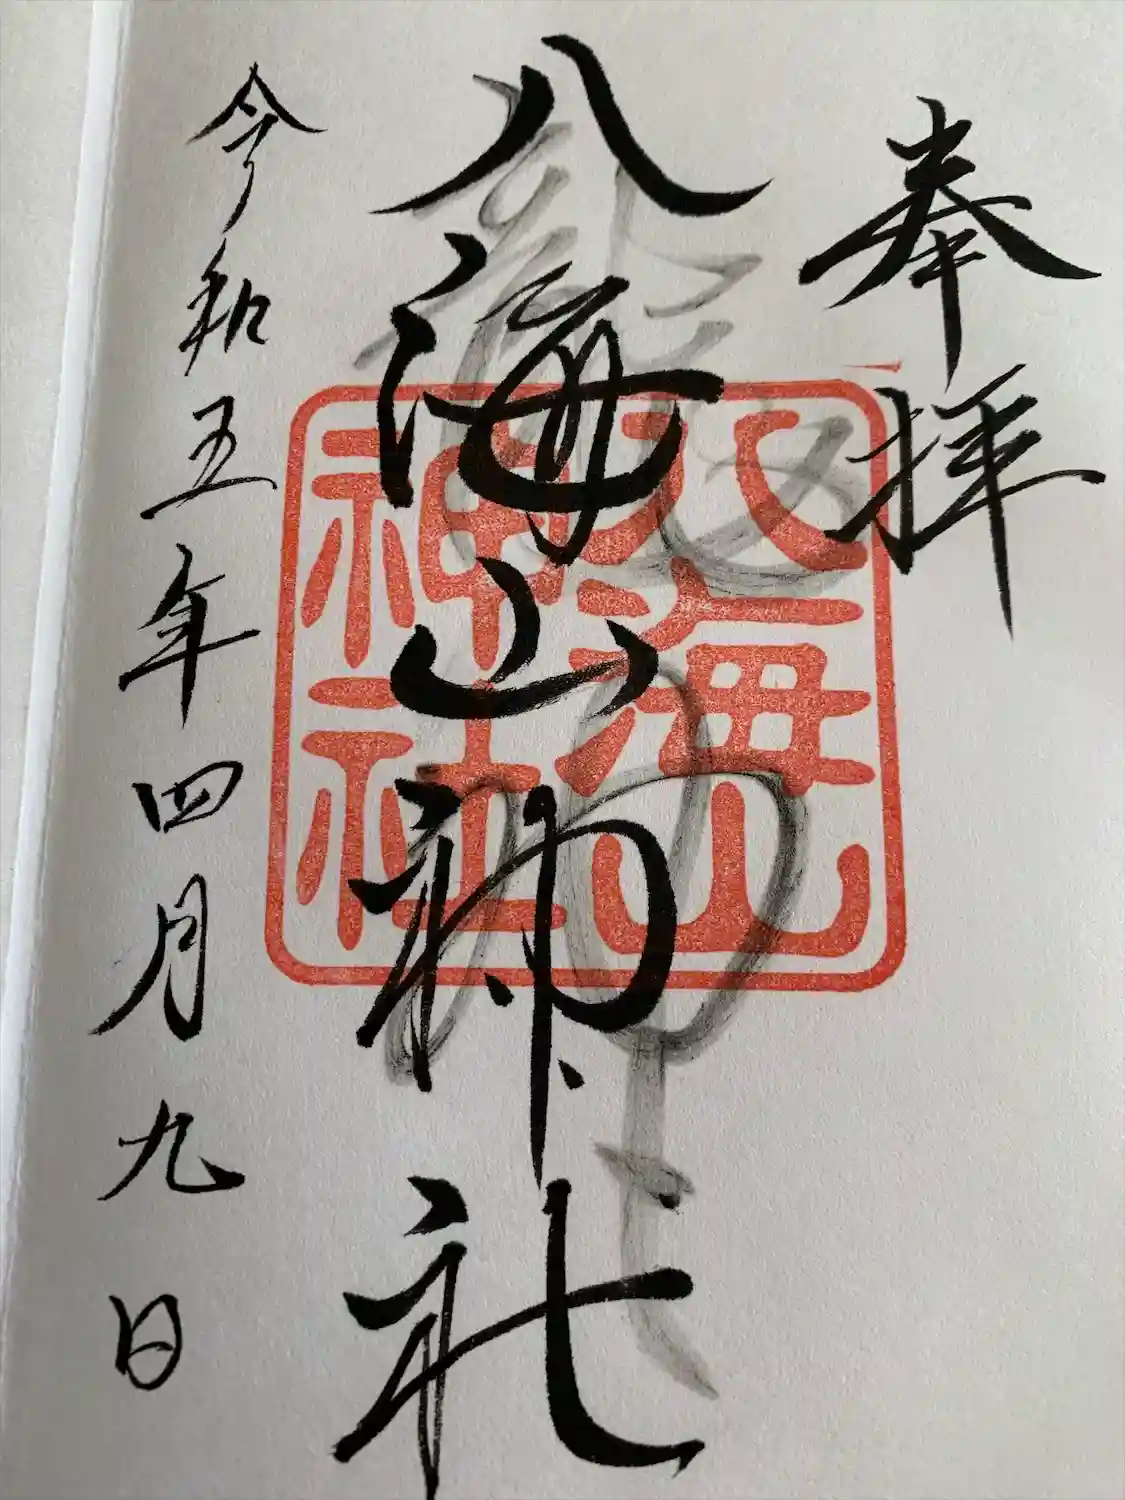 奉拝
八海山神社
八海山
神社
令和五年四月九日